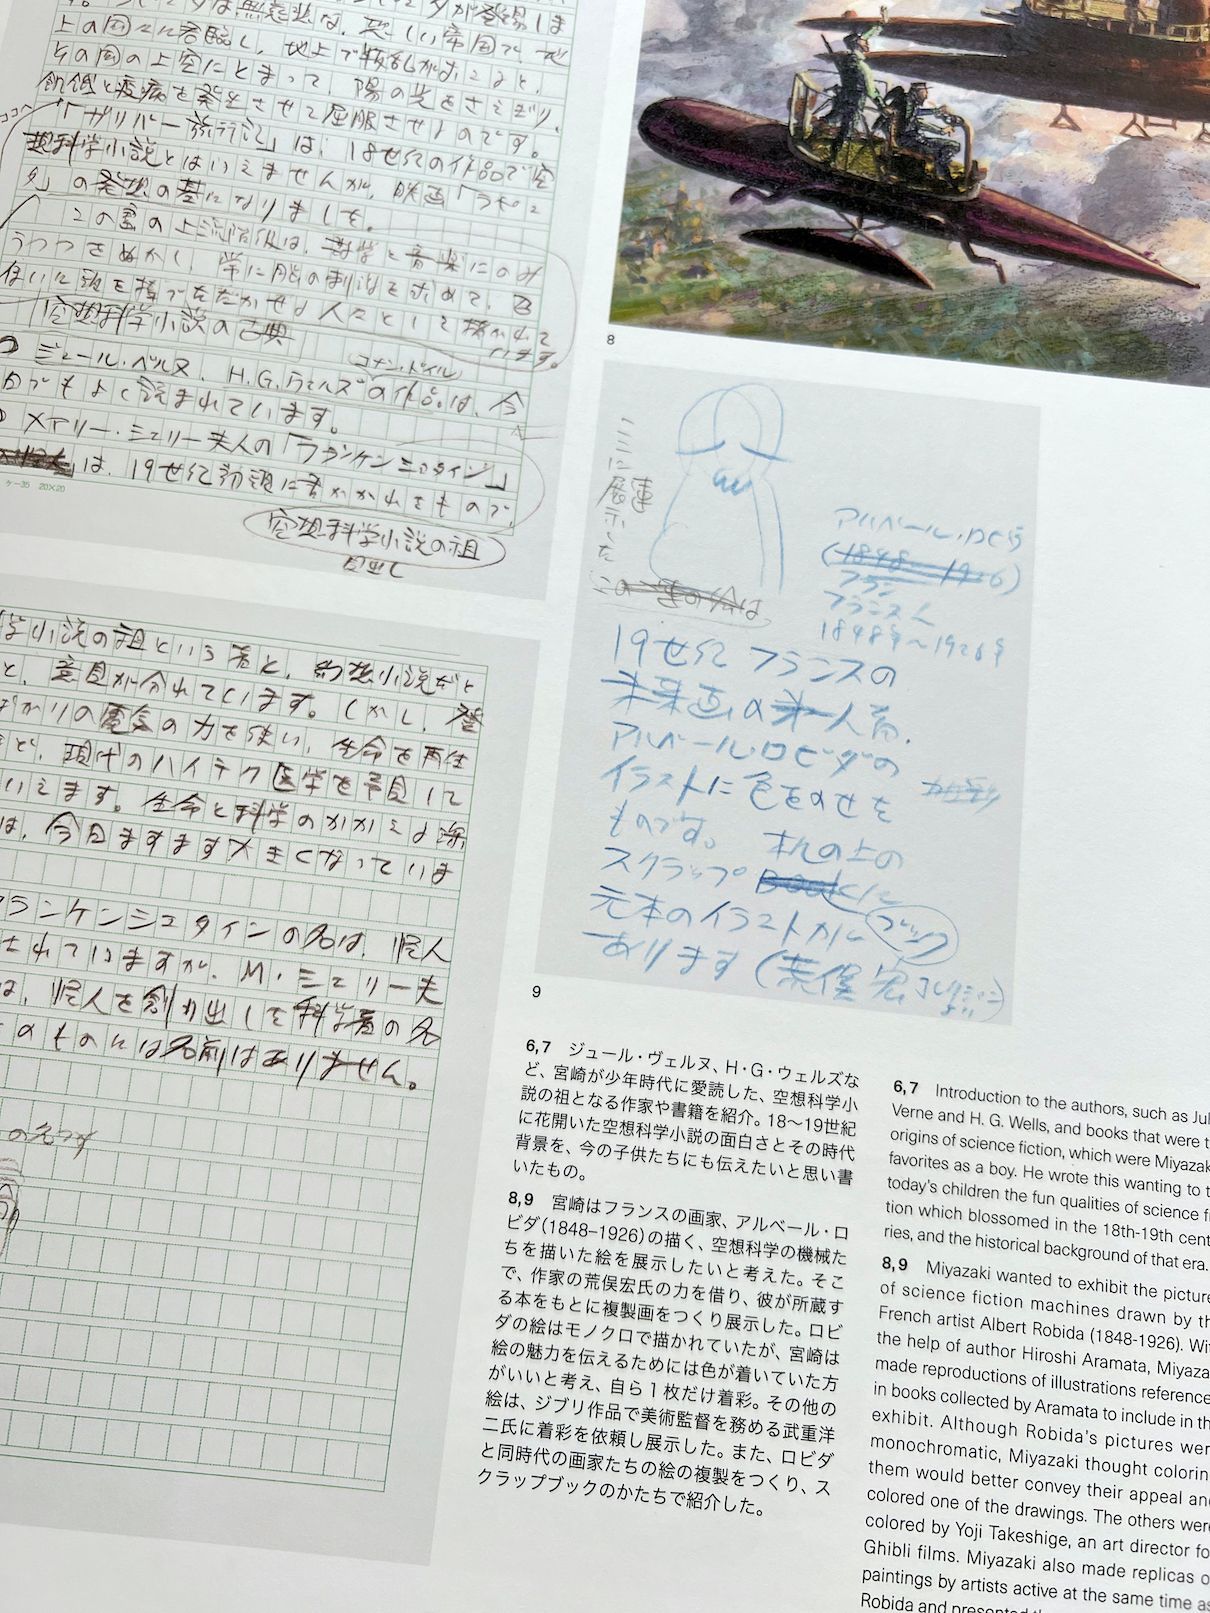 上の国々に君臨し、地上で反乱がおこると、
その国の上空にとまって、陽の光をさえぎり、
飢餓と疫病を発生させて屈服させるのです。
ココへ
「ガリバー旅行記」は、18世紀の作品で空
想科学小説とはいえませんが、映画「ラピュ
タ」の発想の基になりました。
この雲の上流階級は、哲学と音楽にのみ
うつつをぬかし、
空想科学小説の古典
ジュール・ベルヌ、H.G.ウェルズの作品は、今
コナン・ドイル
でもよく読まれています。
メアリー・シェリー夫人の「フランケンシュタイン」
は、19世紀初頭に書かれたもので、
ケー35 20×20
空想科学小説の祖
見出し
学小説の祖という者と、幻想小説だと
と、意見が分れています。しかし、発
ばかりの電気の力を使い、生命を再生
ど、現代のハイテク医学を予見して
いえます。生命と科学のかかえる深
は、今日ますます大きくなっていま
フランケンシュタインの名は、怪人
されていますが、M・シェリー夫
は、怪人を創り出した科学者の名
そのものには名前はありません。
8
ここに
展示した
アルベール・ロビダ
(1848〜1926)
フラン
フランス人
1848年〜1926年
19世紀フランスの
未来画の第一人者、
アルベール・ロビダの
イラストに色をのせた
ものです。 本の上の
スクラップ Bookに
ブック
元本のイラストが
あります(荒俣宏コレクション
より)
9
6,7 ジュール・ヴェルヌ、H・G・ウェルズな
ど、宮崎が少年時代に愛読した、空想科学小
説の祖となる作家や書籍を紹介。18〜19世紀
に花開いた空想科学小説の面白さとその時代
背景を、今の子供たちにも伝えたいと思い書
いたもの。
8,9 宮崎はフランスの画家、アルベール・ロ
ビダ(1848–1926)の描く、空想科学の機械た
ちを描いた絵を展示したいと考えた。そこ
で、作家の荒俣宏氏の力を借り、彼が所蔵す
る本をもとに複製画をつくり展示した。ロビ
ダの絵はモノクロで描かれていたが、宮崎は
絵の魅力を伝えるためには色が着いていた方
がいいと考え、自ら1枚だけ着彩。その他の
絵は、ジブリ作品で美術監督を務める武重洋
二氏に着彩を依頼し展示した。また、ロビダ
と同時代の画家たちの絵の複製をつくり、ス
クラップブックのかたちで紹介した。
6,7 Introduction to the authors, such as Jul
Verne and H. G. Wells, and books that were t
origins of science fiction, which were Miyazak
favorites as a boy. He wrote this wanting to t
today's children the fun qualities of science fi
tion which blossomed in the 18th-19th cent
ries, and the historical background of that era.
8,9 Miyazaki wanted to exhibit the picture
of science fiction machines drawn by th
French artist Albert Robida (1848-1926). Wit
the help of author Hiroshi Aramata, Miyaza
made reproductions of illustrations reference
in books collected by Aramata to include in th
exhibit. Although Robida's pictures wer
monochromatic, Miyazaki thought colorin
them would better convey their appeal and
colored one of the drawings. The others were
colored by Yoji Takeshige, an art director fo
Ghibli films. Miyazaki also made replicas o
paintings by artists active at the same time as
Robida and presented